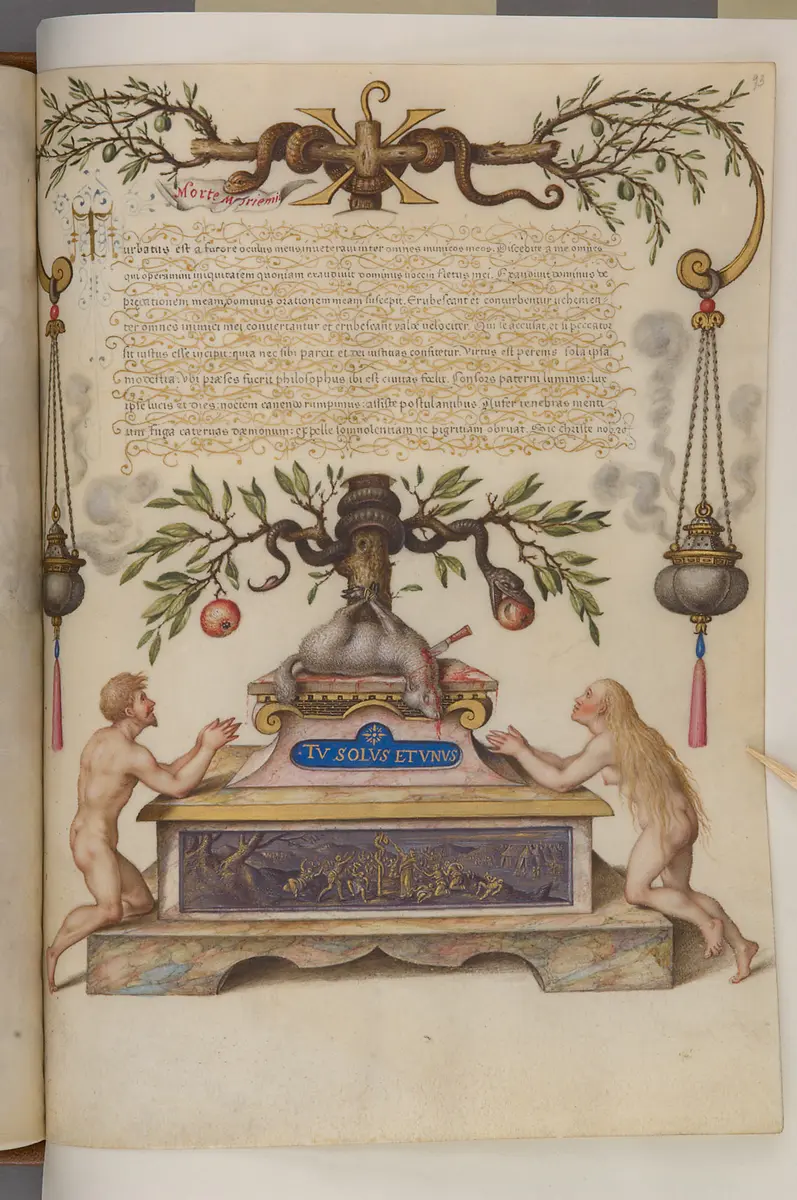 93
Morte Moriemi
Turbatus est a furore oculus meus inveteravi inter omnes inimicos meos. Discedite a me omnes
qui operamini iniquitatem quoniam exaudivit dominus vocem fletus mei. Exaudivit dominus de
precationem meam dominus orationem meam suscepit. Erubescant et conturbentur vehemen
ter omnes inimici mei convertantur et erubescant valde velociter. Qui se accusat, et si peccator
sit iustus esse incipit: quia nec sibi parcit et dei iustitias confitetur. Virtus est perenis sola ipsa
modestia. Ubi præses fuerit philosophus ibi est civitas fœlix. Consors paterni luminis: lux
ipse lucis et dies: noctem canendo rumpimus: assiste postulantibus Aufer tenebras menti
um fuga catervas dæmonum: expelle somnolentiam ne pigritiam obruat. Sic christe nobis
TV SOLVS ET VNVS